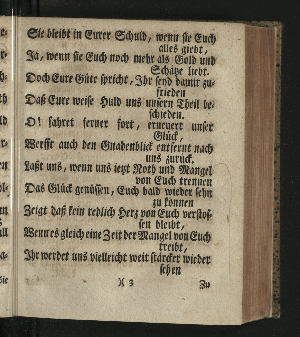 Sie bleibt in Eurer Schuld, wenn sie Euch
alles giebt,
Ja, wenn sie Euch noch mehr als Gold und
Schätze liebt.
Doch Eure Güte spricht, Ihr seyd damit zu-
frieden
Daß Eure weise Huld uns unsern Theil be-
schieden.
O! fahret ferner fort, erneuert unser
Glück,
Werfft auch den Gnadenblick entfernt nach
uns zurück.
Laßt uns, wenn uns ietzt Noth und Mangel
von Euch trennen
Das Glück genüssen, Euch bald wieder sehn
zu können
Zeigt daß kein redlich Herz von Euch verstos-
sen bleibt,
Wenn es gleich eine Zeit der Mangel von Euch
treibt,
Ihr werdet uns vielleicht weit stärcker wieder
sehen
X 3
Zu